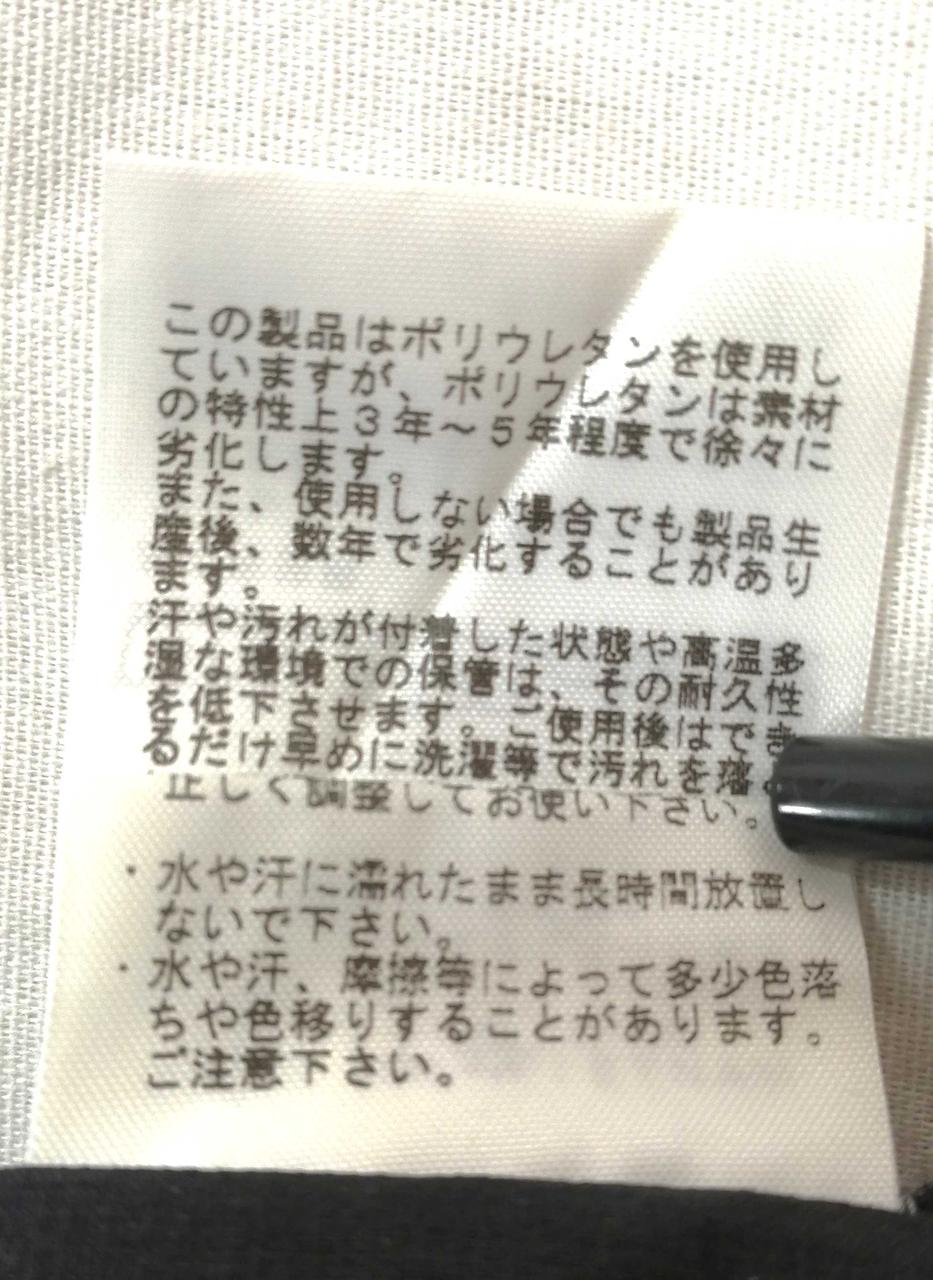 この製品はポリウレタンを使用し
ていますが、ポリウレタンは素材
の特性上3年～5年程度で徐々に
劣化します。
また、使用しない場合でも製品生
産後、数年で劣化することがあり
ます。
汗や汚れが付着した状態や高温多
湿な環境での保管は、その耐久性
を低下させます。ご使用後はでき
るだけ早めに洗濯等で汚れを落
正しく調整してお使い下さい。
・水や汗に濡れたまま長時間放置し
ないで下さい。
・水や汗、摩擦等によって多少色落
ちや色移りすることがあります。
ご注意下さい。